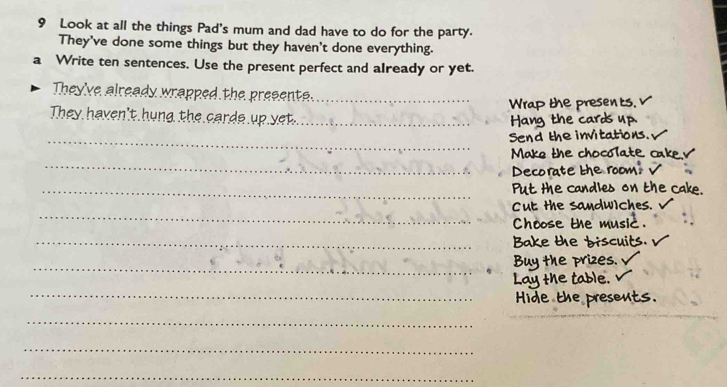 9 Look at all the things Pad's mum and dad have to do for the party.
They've done some things but they haven't done everything.
a Write ten sentences. Use the present perfect and already or yet.
► They've already wrapped the presents.
They haven't hung the cards up yet.
Wrap the presents. ✓
Hang the cards up.
Send the invitations. ✓
Make the chocolate cake. ✓
Decorate the room. ✓
Put the candles on the cake.
Cut the sandwiches. ✓
Choose the music.
Bake the biscuits. ✓
Buy the prizes. ✓
Lay the table. ✓
Hide the presents.